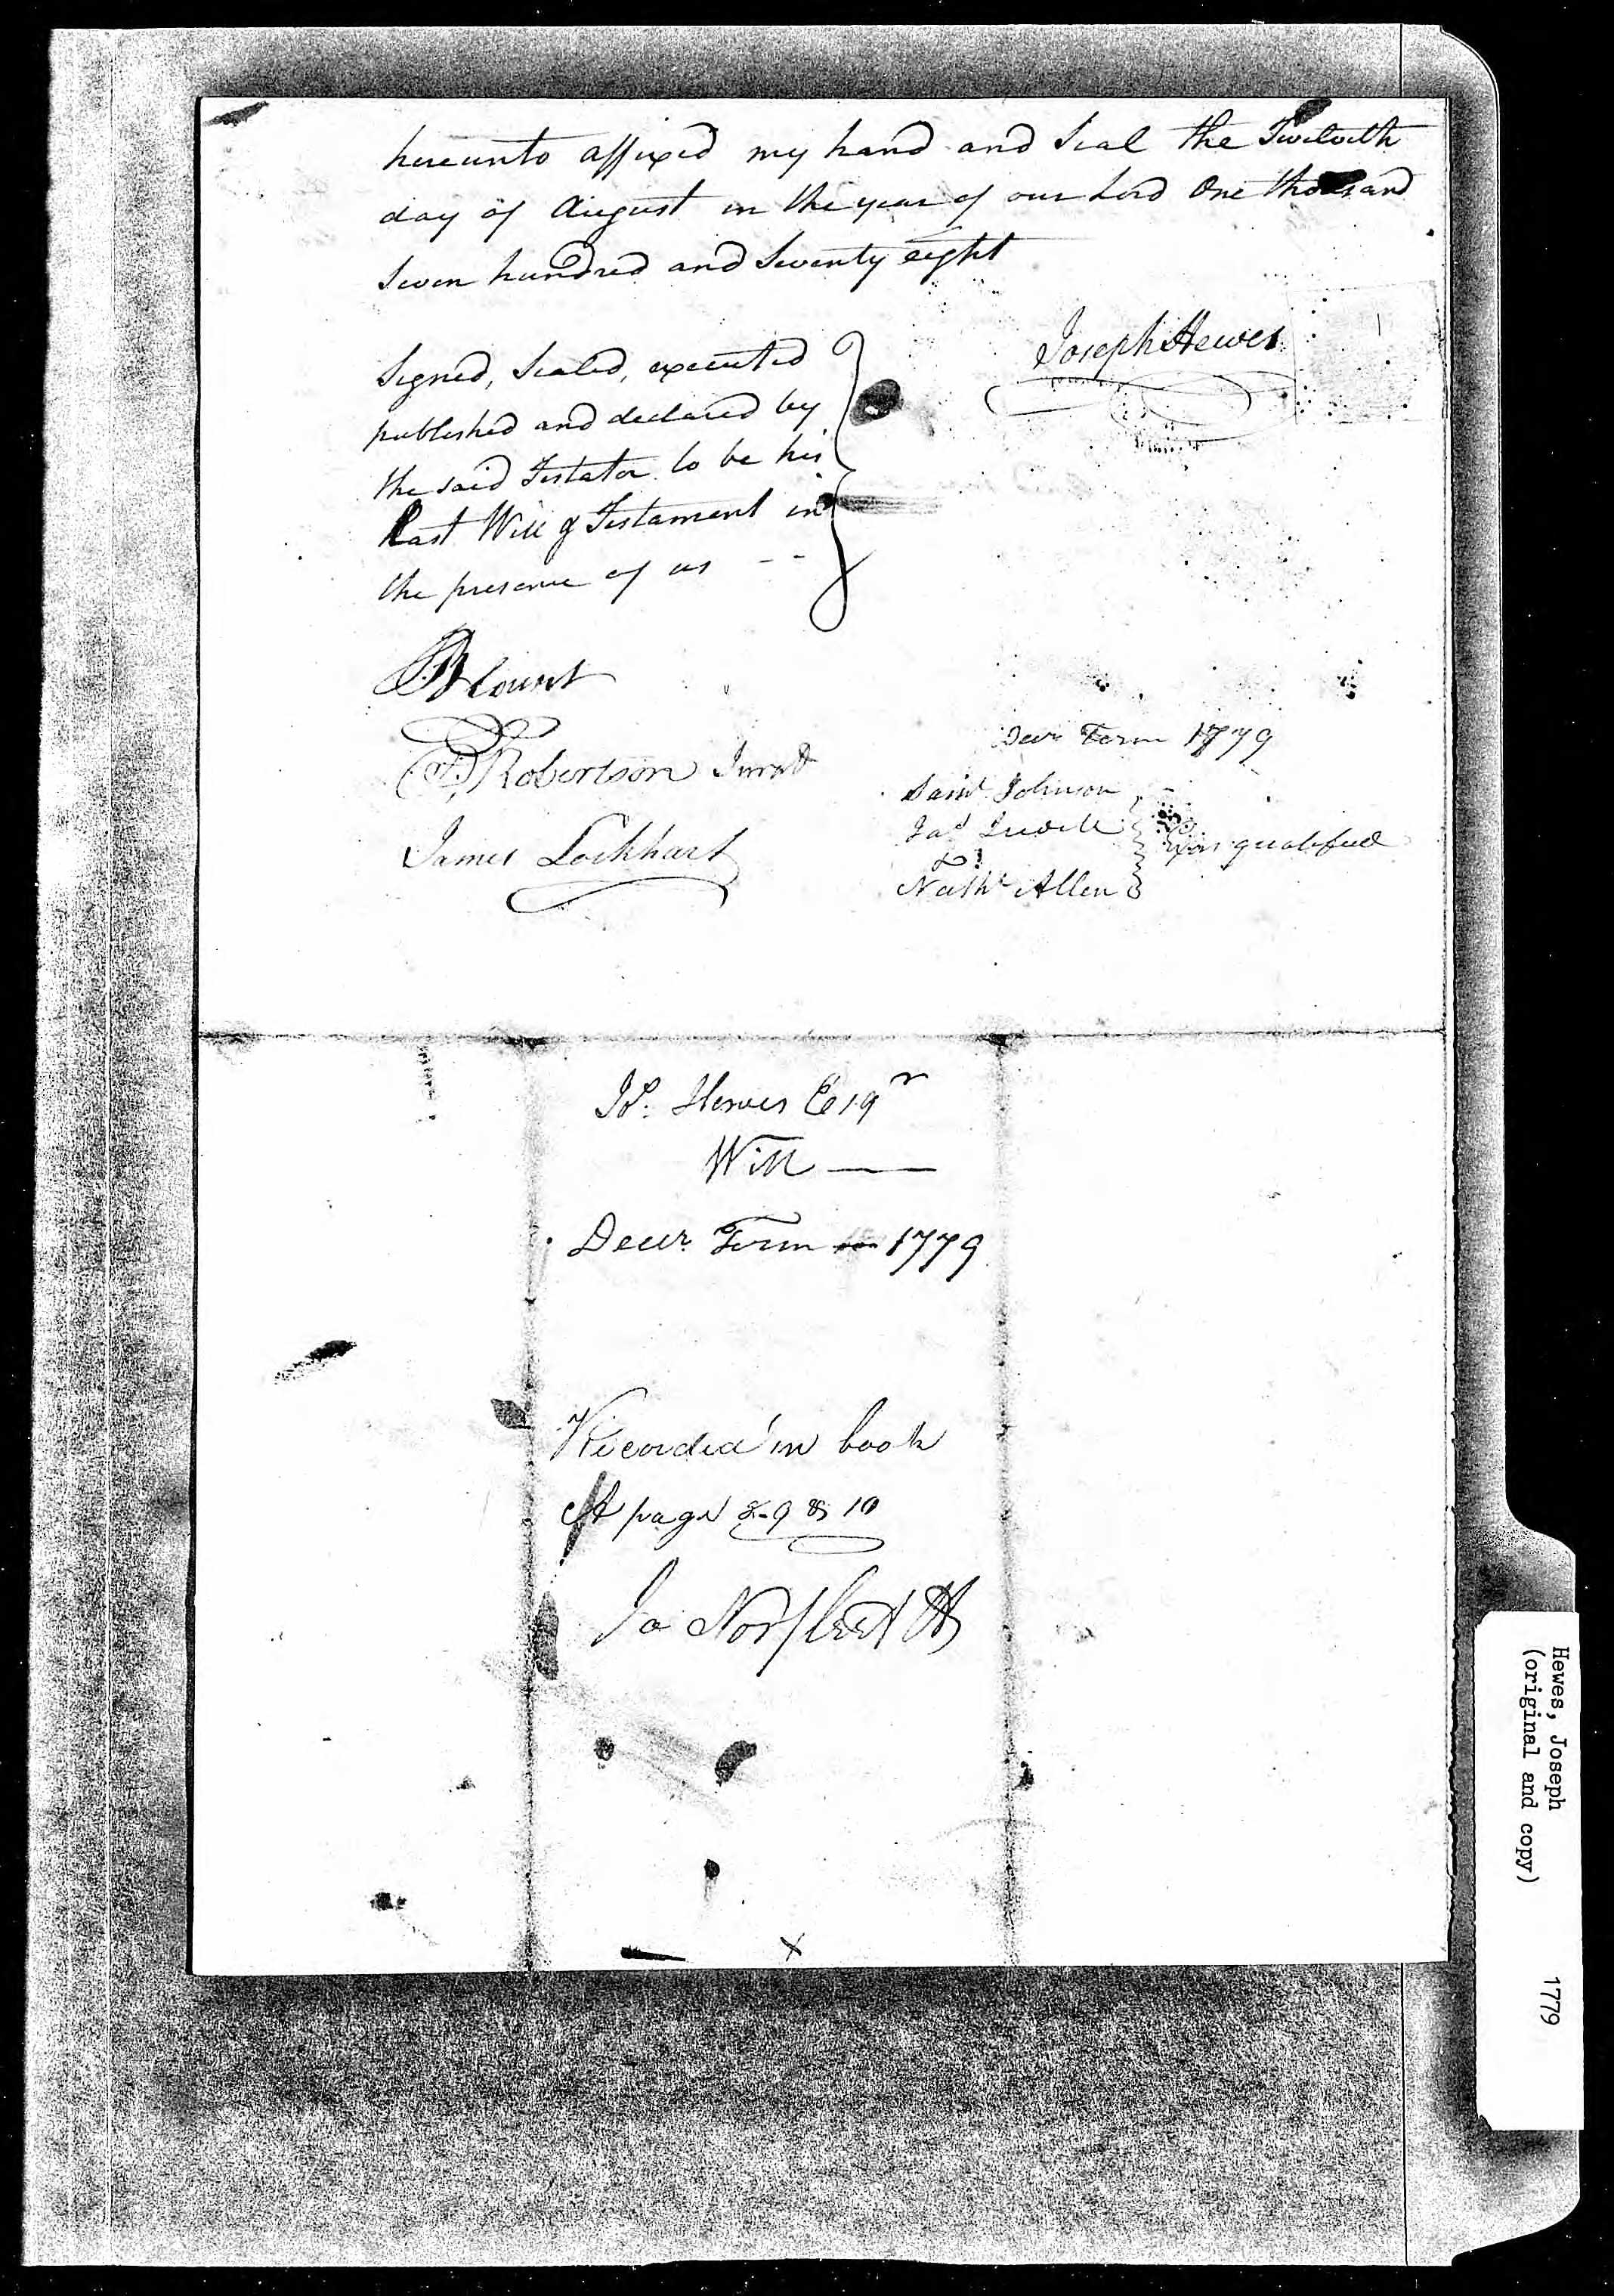 hereunto affixed my hand and Seal the Twelveth
day of August in the year of our Lord One thousand
Seven hundred and Seventy eight
Joseph Hewes
Signed, Sealed, executed
published and declared by
the said Testator to be his
Last Will & Testament in
the presence of us - -
Blount
Robertson Jurat
James Lockhart
Decr Term 1779
Saml Johnson
Jas Iredell
&
Nathl Allen
Exrs qualified
Js. Hewes Esqr
Will
Decr. Term 1779
Recorded in book
A page 8-9 & 10
Jo Norfleet
Hewes, Joseph 1779
(original and copy)